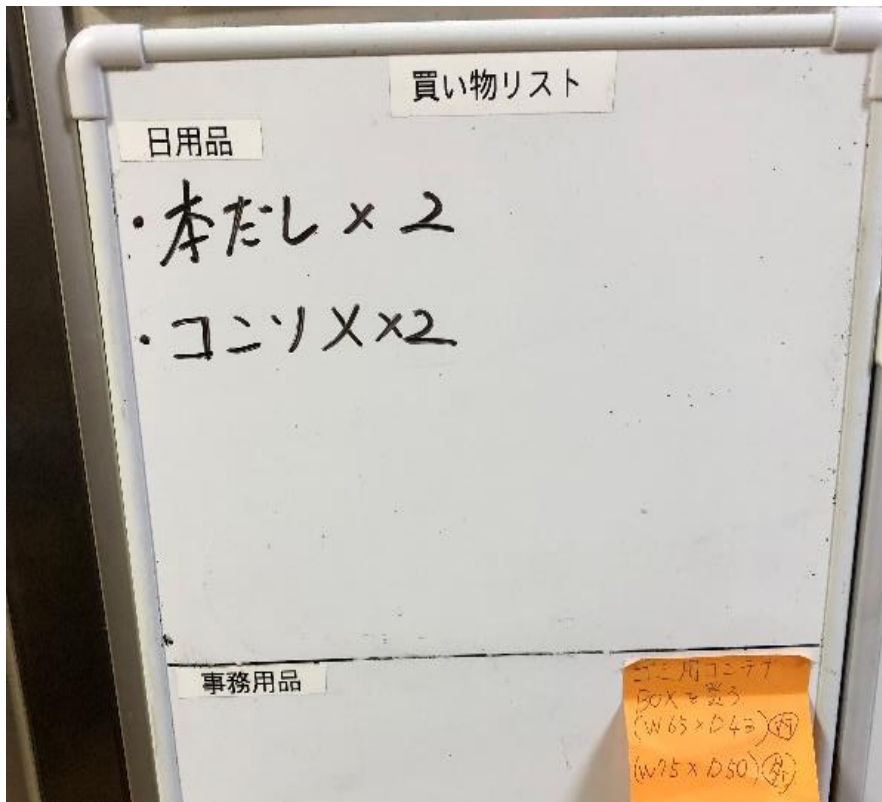 買い物リスト
日用品
・本だし×2
・コンソメ×2
事務用品
ゴミ用コンテナ
BOXを買う
(W65×D43)
(W75×D50)